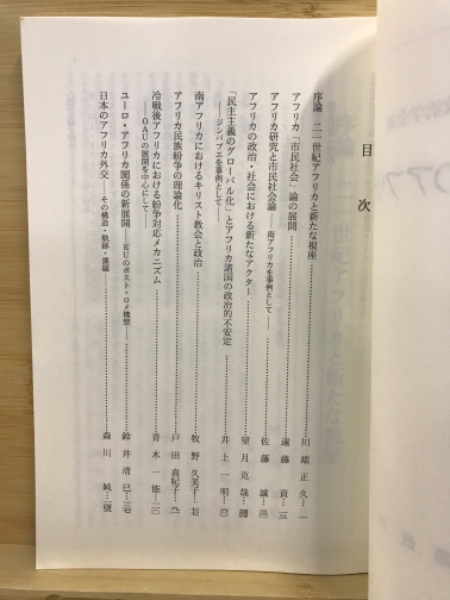 目次
序論 二一世紀アフリカと新たな視座……川端正久…一
アフリカ「市民社会」論の展開……遠藤貢…三
アフリカ研究と市民社会論――南アフリカを事例として――……佐藤誠…
アフリカの政治・社会における新たなアクター……望月克哉…
「民主主義のグローバル化」とアフリカ諸国の政治的不安定
――ジンバブエを事例として――……井上一明…
南アフリカにおけるキリスト教会と政治……牧野久美子…
アフリカ民族紛争の理論化……戸田真紀子…
冷戦後アフリカにおける紛争対応メカニズム
――OAUの展開を中心にして――……青木一能…
ユーロ・アフリカ関係の新展開――EUのポスト・ロメ構想――……鈴井清巳…
日本のアフリカ外交――その構造・軌跡・課題――……森川純…